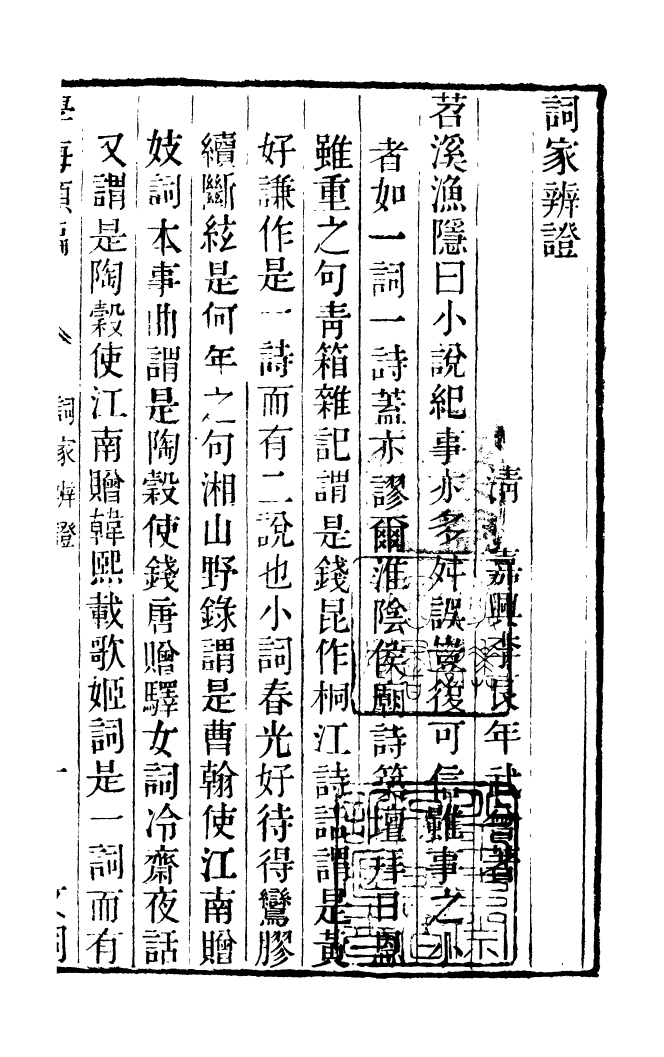 詞家辨證
清嘉興李良年武曾著
苕溪漁隱曰小說紀事亦多舛誤豈復可信雖事之小
者如一詞一詩蓋亦謬爾淮陰侯廟詩築壇拜日恩
雖重之句青箱雜記謂是錢昆作桐江詩話謂是黃
好謙作是一詩而有二說也小詞春光好待得鸞膠
續斷絃是何年之句湘山野錄謂是曹翰使江南贈
妓詞本事曲謂是陶穀使錢唐贈驛女詞冷齋夜話
又謂是陶穀使江南贈韓熙載歌姬詞是一詞而有
詞家辨證
一